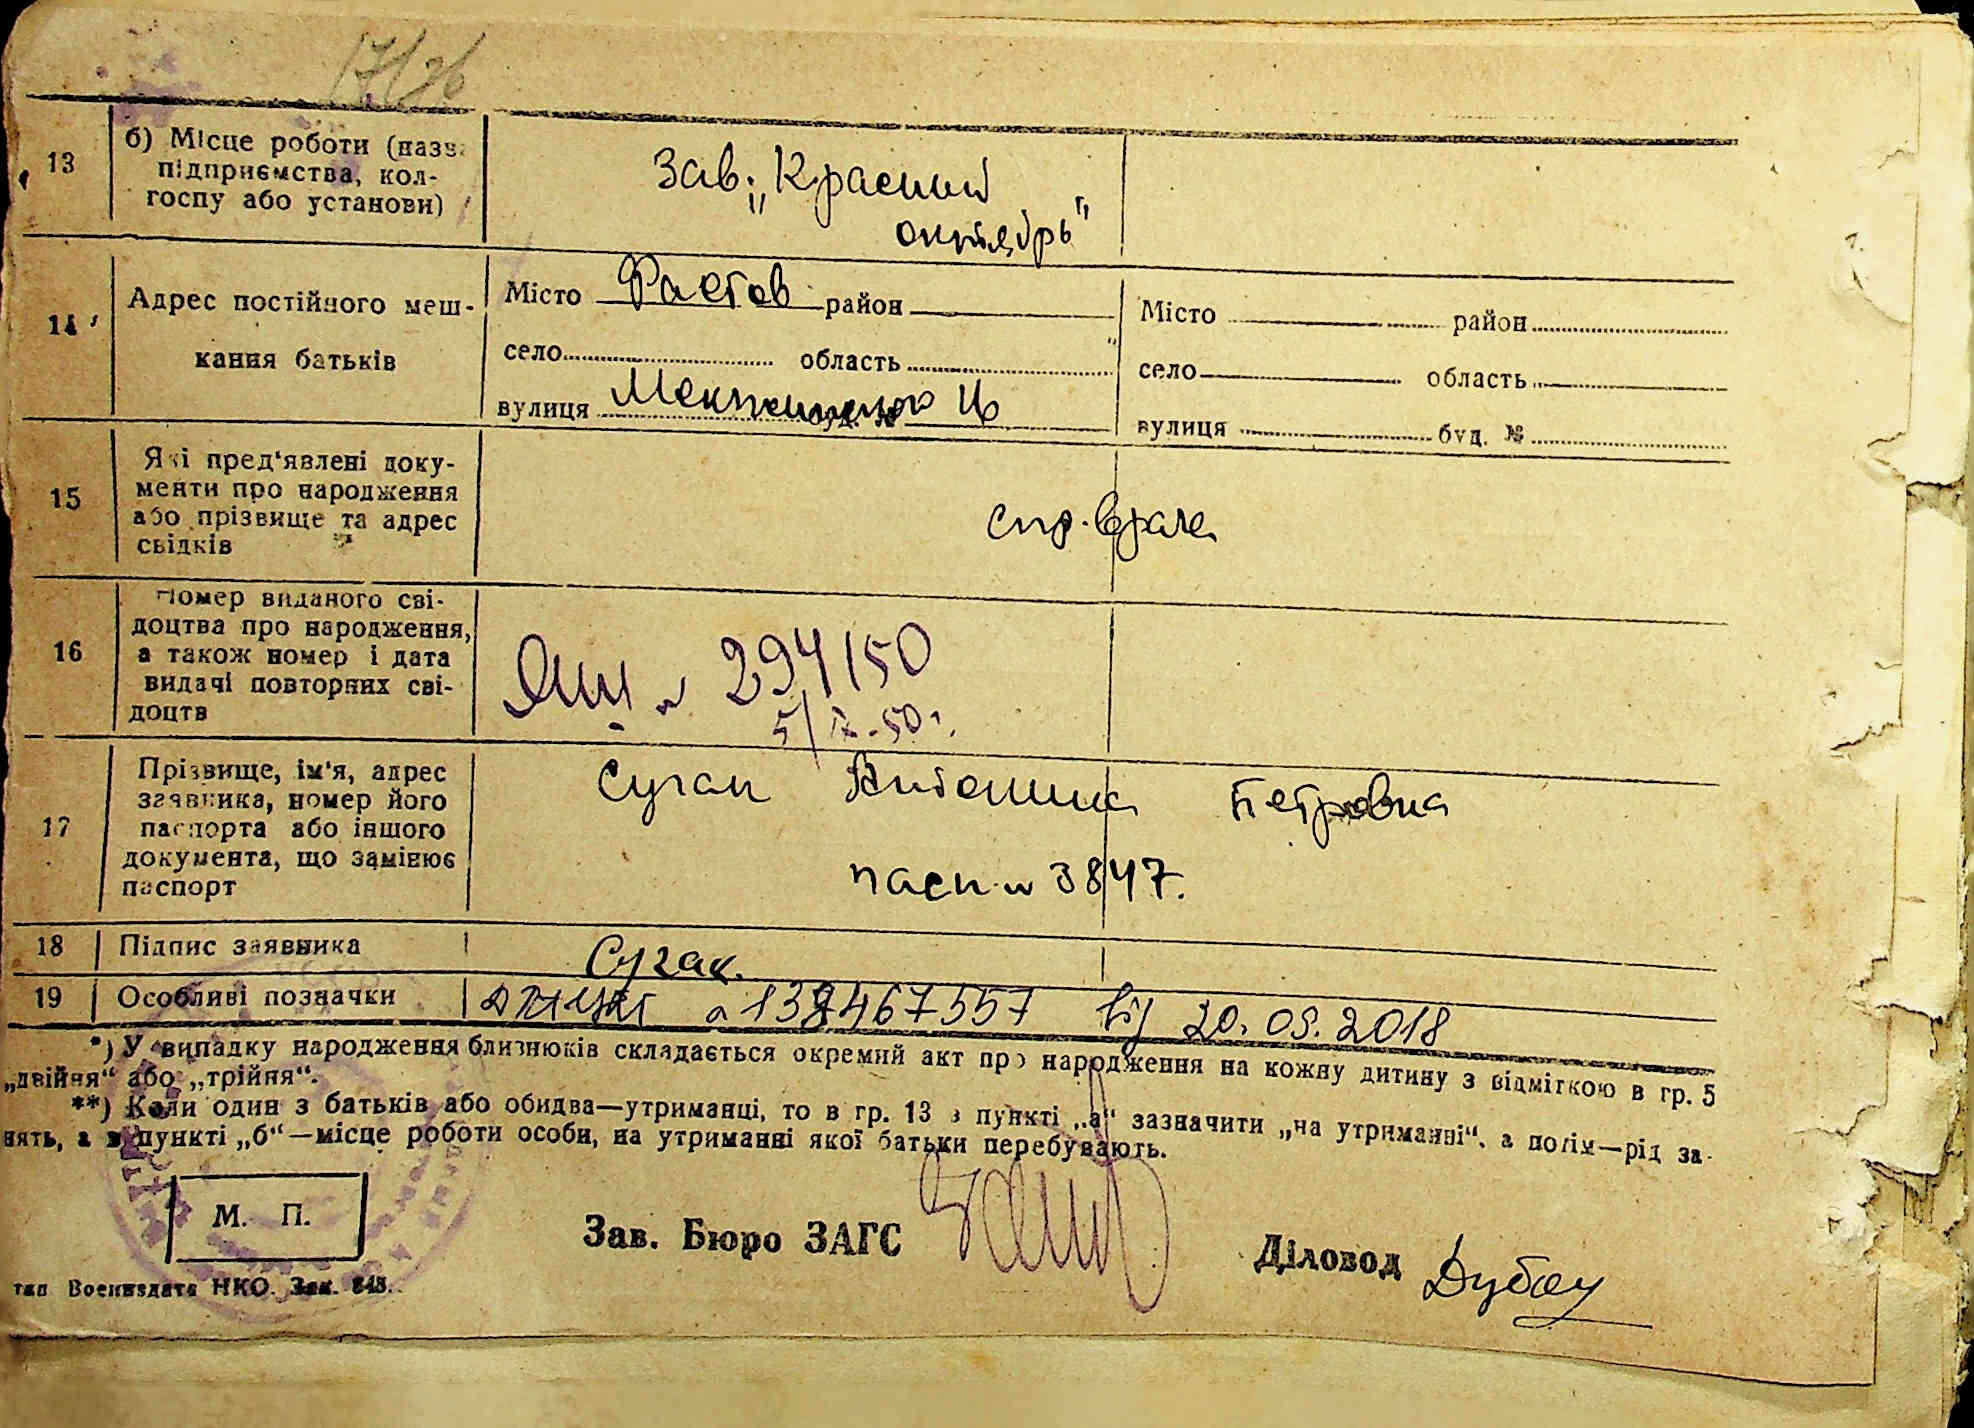 17/26
13
б) Місце роботи (назв
підприємства, кол-
госпу або установи)
Зав. „Красний
октябрь"
14
Адрес постійного меш-
кання батьків
Місто Фастов район
село область
вулиця буд. №
Місто район
село область
вулиця буд. №
15
Які пред'явлені доку-
менти про народження
або прізвище та адрес
свідків
спр. врача
16
Номер виданого сві-
доцтва про народження,
а також номер і дата
видачі повторних сві-
доцтв
294150
50г.
17
Прізвище, ім'я, адрес
заявника, номер його
паспорта або іншого
документа, що замінює
паспорт
Сугак Антонина Петровна
пасп № 3847.
18
Підпис заявника
Сугак.
19
Особливі позначки
від 20.09.2018
*) У випадку народження близнюків складається окремий акт про народження на кожну дитину з відміткою в гр. 5
„двійня“ або „трійня“.
**) Коли один з батьків або обидва—утриманці, то в гр. 13 в пункті „а“ зазначити „на утриманні“, а потім—рід за-
нять, а в пункті „б“—місце роботи особи, на утриманні якої батьки перебувають.
М. П.
Зав. Бюро ЗАГС
Діловод
тип Воениздата НКО. Зак. 848.